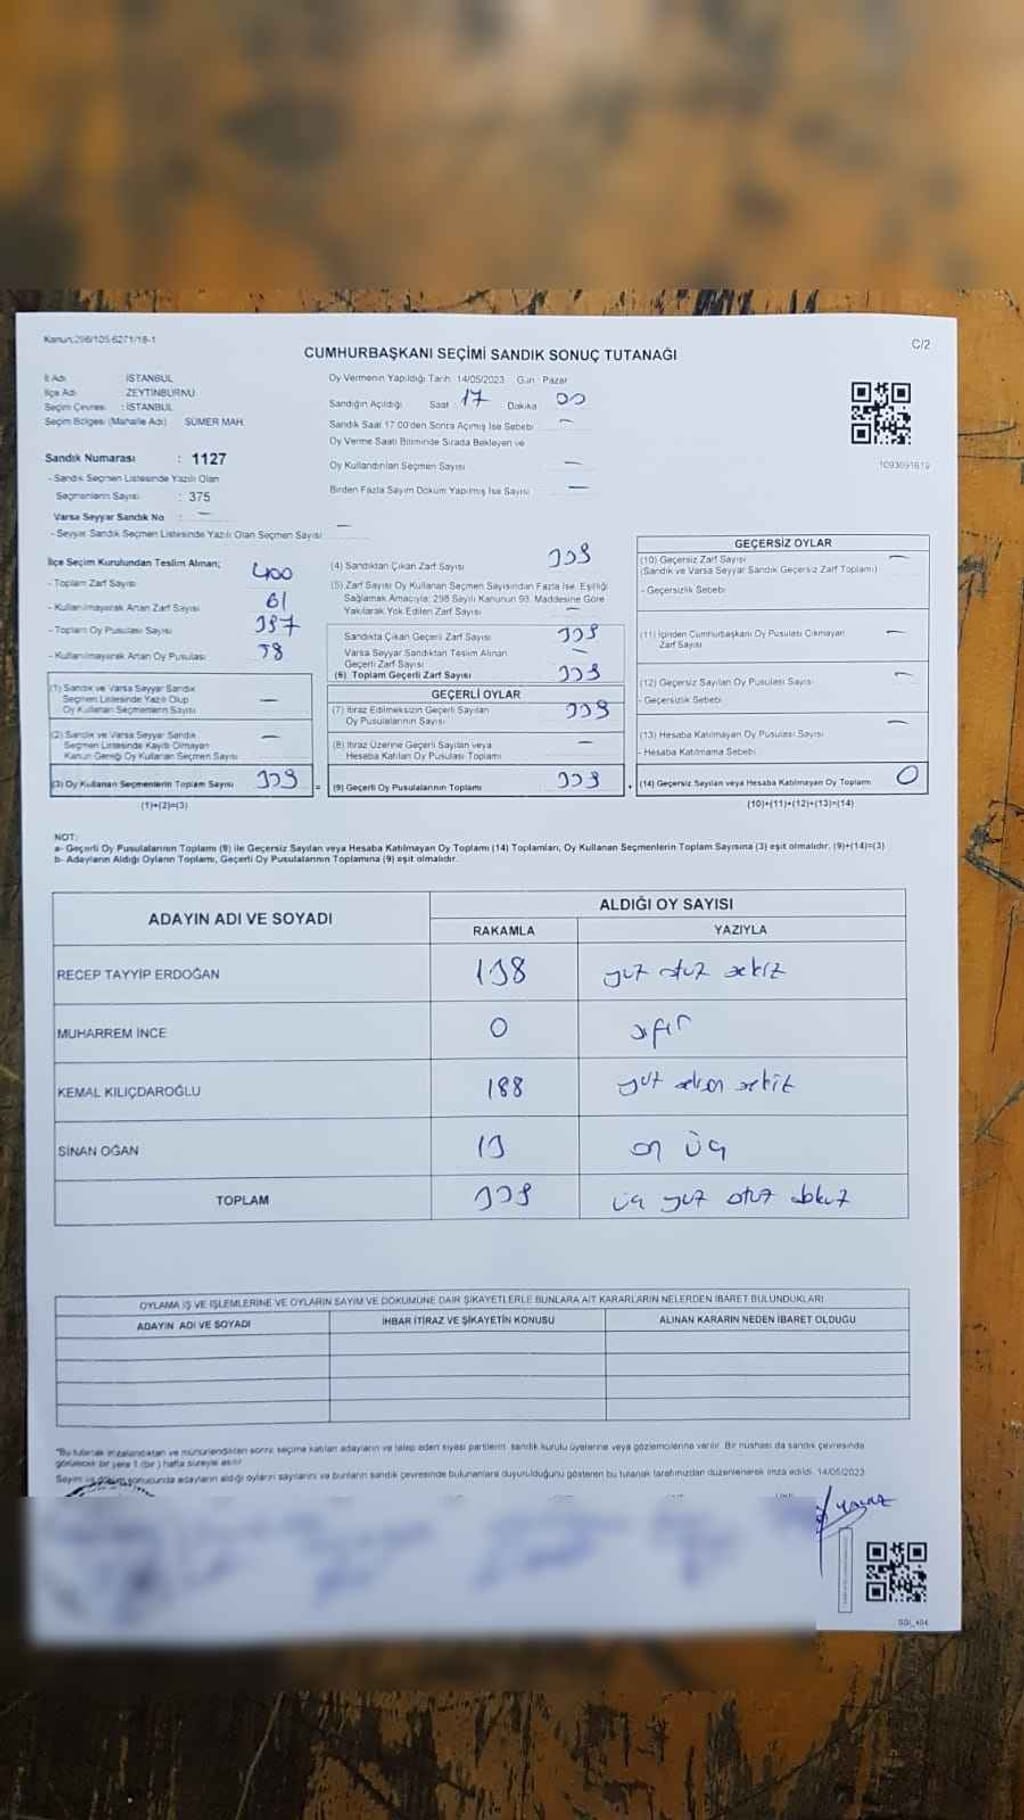 Kanun:298/105 6271/18-1
C/2
CUMHURBAŞKANI SEÇİMİ SANDIK SONUÇ TUTANAĞI
İl Adı : İSTANBUL
İlçe Adı : ZEYTİNBURNU
Seçim Çevresi : İSTANBUL
Seçim Bölgesi (Mahalle Adı) SÜMER MAH.
Sandık Numarası : 1127
- Sandık Seçmen Listesinde Yazılı Olan
Seçmenlerin Sayısı : 375
Varsa Seyyar Sandık No : —
- Seyyar Sandık Seçmen Listesinde Yazılı Olan Seçmen Sayısı —
Oy Vermenin Yapıldığı Tarih: 14/05/2023 Gün : Pazar
Sandığın Açıldığı Saat : 17 Dakika 00
Sandık Saat 17:00'den Sonra Açılmış İse Sebebi —
Oy Verme Saati Bitiminde Sırada Bekleyen ve
Oy Kullandırılan Seçmen Sayısı —
Birden Fazla Sayım Döküm Yapılmış İse Sayısı —
1093091619
İlçe Seçim Kurulundan Teslim Alınan;
- Toplam Zarf Sayısı 400
- Kullanılmayarak Artan Zarf Sayısı 61
- Toplam Oy Pusulası Sayısı 397
- Kullanılmayarak Artan Oy Pusulası 58
(1) Sandık ve Varsa Seyyar Sandık
Seçmen Listesinde Yazılı Olup
Oy Kullanan Seçmenlerin Sayısı —
(2) Sandık ve Varsa Seyyar Sandık
Seçmen Listesinde Kayıtlı Olmayan
Kanun Gereği Oy Kullanan Seçmen Sayısı —
(3) Oy Kullanan Seçmenlerin Toplam Sayısı 339
(1)+(2)=(3)
(4) Sandıktan Çıkan Zarf Sayısı 339
(5) Zarf Sayısı Oy Kullanan Seçmen Sayısından Fazla İse, Eşitliği
Sağlamak Amacıyla; 298 Sayılı Kanunun 93. Maddesine Göre
Yakılarak Yok Edilen Zarf Sayısı —
Sandıkta Çıkan Geçerli Zarf Sayısı 339
Varsa Seyyar Sandıktan Teslim Alınan
Geçerli Zarf Sayısı —
(6) Toplam Geçerli Zarf Sayısı 339
GEÇERLİ OYLAR
(7) İtiraz Edilmeksizin Geçerli Sayılan
Oy Pusulalarının Sayısı 339
(8) İtiraz Üzerine Geçerli Sayılan veya
Hesaba Katılan Oy Pusulası Toplamı —
= (9) Geçerli Oy Pusulalarının Toplamı 339
GEÇERSİZ OYLAR
(10) Geçersiz Zarf Sayısı —
(Sandık ve Varsa Seyyar Sandık Geçersiz Zarf Toplamı)
- Geçersizlik Sebebi
(11) İçinden Cumhurbaşkanı Oy Pusulası Çıkmayan
Zarf Sayısı —
(12) Geçersiz Sayılan Oy Pusulası Sayısı —
- Geçersizlik Sebebi
(13) Hesaba Katılmayan Oy Pusulası Sayısı —
- Hesaba Katılmama Sebebi
+ (14) Geçersiz Sayılan veya Hesaba Katılmayan Oy Toplamı 0
(10)+(11)+(12)+(13)=(14)
NOT:
a- Geçerli Oy Pusulalarının Toplamı (9) ile Geçersiz Sayılan veya Hesaba Katılmayan Oy Toplamı (14) Toplamları, Oy Kullanan Seçmenlerin Toplam Sayısına (3) eşit olmalıdır. (9)+(14)=(3)
b- Adayların Aldığı Oyların Toplamı, Geçerli Oy Pusulalarının Toplamına (9) eşit olmalıdır.
ADAYIN ADI VE SOYADI ALDIĞI OY SAYISI
RAKAMLA YAZIYLA
RECEP TAYYİP ERDOĞAN 138 yüz otuz sekiz
MUHARREM İNCE 0 sıfır
KEMAL KILIÇDAROĞLU 188 yüz seksen sekiz
SİNAN OĞAN 13 on üç
TOPLAM 339 üç yüz otuz dokuz
OYLAMA İŞ VE İŞLEMLERİNE VE OYLARIN SAYIM VE DÖKÜMÜNE DAİR ŞİKAYETLERLE BUNLARA AİT KARARLARIN NELERDEN İBARET BULUNDUKLARI
ADAYIN ADI VE SOYADI İHBAR İTİRAZ VE ŞİKAYETİN KONUSU ALINAN KARARIN NEDEN İBARET OLDUĞU
"Bu tutanak imzalandıktan ve mühürlendikten sonra; seçime katılan adayların ve talep eden siyasi partilerin sandık kurulu üyelerine veya gözlemcilerine verilir. Bir nüshası da sandık çevresinde
görülecek bir yere 1 (bir) hafta süreyle asılır
Sayım ve döküm sonucunda adayların aldığı oyların sayılarını ve bunların sandık çevresinde bulunanlara duyurulduğunu gösteren bu tutanak tarafımızdan düzenlenerek imza edildi. 14/05/2023